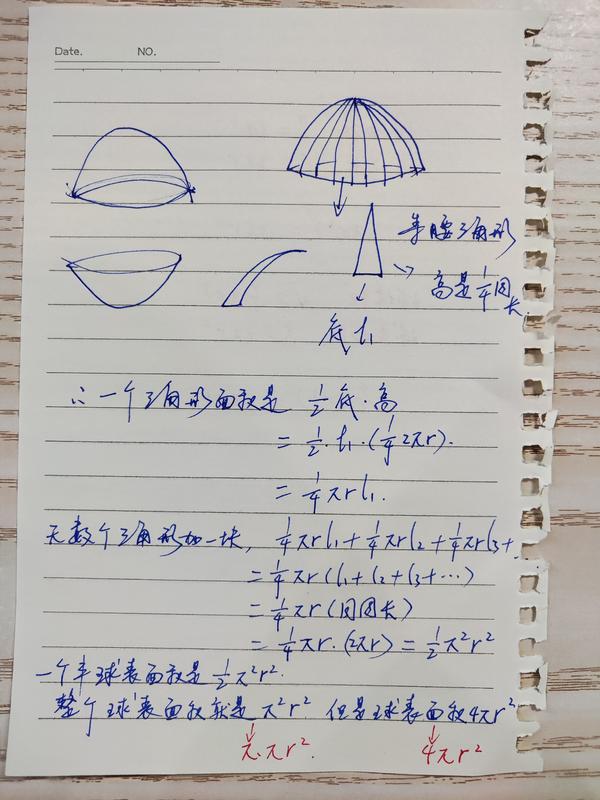 Date. NO.
等腰三角形
高是1/4周长
底 l₁
∴一个三角形面积是 1/2 底·高
= 1/2·l₁·(1/4 2πr).
= 1/4 πrl₁.
无数个三角形加一块, 1/4 πrl₁ + 1/4 πrl₂ + 1/4 πrl₃ + …
= 1/4 πr(l₁ + l₂ + l₃ + …)
= 1/4 πr(圆周长)
= 1/4 πr·(2πr) = 1/2 π²r²
一个半球表面积是 1/2 π²r².
整个球表面积就是 π²r² 但是球表面积4πr²
π·πr².
4πr²